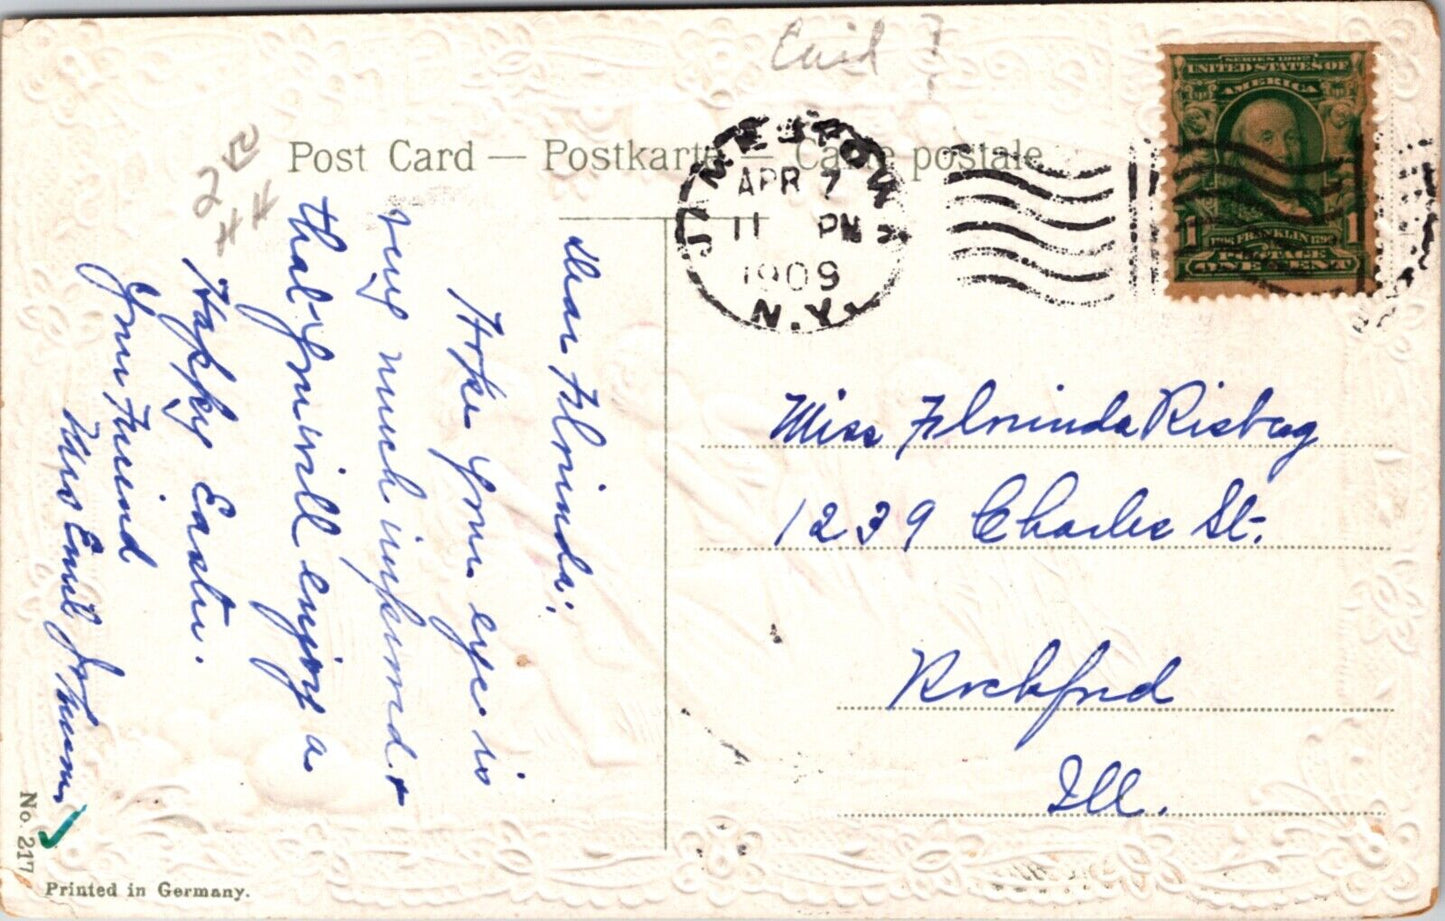 Enid ?
2 00
HH
Post Card — Postkarte — Carte postale
JAMESTOWN
APR 7
11 PM
1909
N.Y.
SERIES 1902
UNITED STATES OF
AMERICA
1 1706 FRANKLIN 1790 1
POSTAGE
ONE CENT
Dear Florinda:
Hoke your eye is
very much improved &
that you will enjoy a
Happy Easter.
Your Friend
Mrs Emil Johnson,
Miss Florinda Risberg
1239 Charles St.
Rockford
Ill.
No. 217
Printed in Germany.